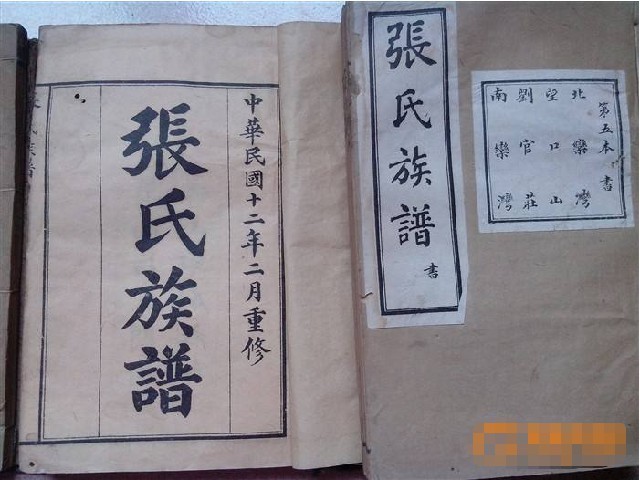 中華民國十二年二月重修
張氏族譜
張氏族譜
書
第五本書
北欒灣
望口山
劉官莊
南欒灣